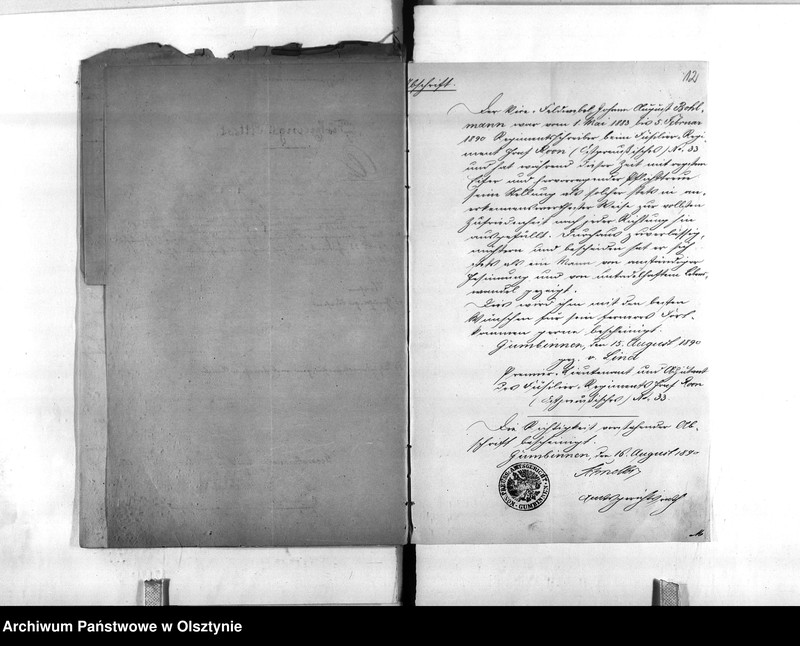 12
Abschrift.
Der Vice-Feldwebel Johann August Bohl-
mann war vom 1 Mai 1883 bis 5 Februar
1890 Regimentsschreiber beim Füsilier-Regi-
ment Graf Roon (Ostpreußisches) Nr. 33
und hat während dieser Zeit mit regstem
Eifer und hervorragender Pflichttreue
seine Stellung als solcher stets in an-
erkennenswerthester Weise zur vollsten
Zufriedenheit nach jeder Richtung hin
ausgefüllt. Durchaus zuverlässig,
nüchtern und bescheiden hat er sich
stets als ein Mann von anständiger
Gesinnung und von untadelhaftem Lebens-
wandel gezeigt.
Dies wird ihm mit den besten
Wünschen für sein ferneres Fort-
kommen gerne bescheinigt.
Gumbinnen, den 15. August 1890
gez. v. Linde
Premier-Lieutenant und Adjutant
des Füsilier-Regiments Graf Roon
(Ostpreußisches) Nr. 33
Die Richtigkeit vorstehender Ab-
schrift bescheinigt.
Gumbinnen, den 16. August 1890
AMTSGERICHT
GUMBINNEN
Archiwum Państwowe w Olsztynie